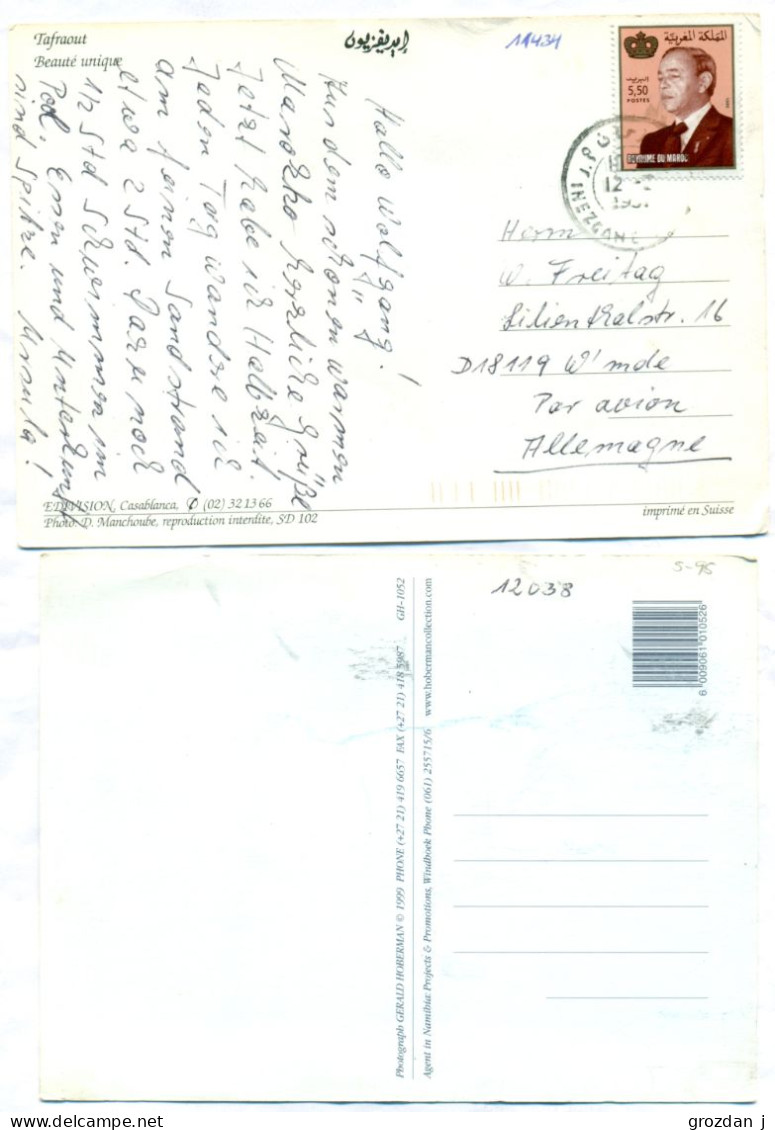 Tafraout
Beauté unique
إيديفزيون
11434
المملكة المغربية
البريد
5,50
POSTES
ROYAUME DU MAROC
INEZGANE
12
Hallo Wolfgang!
Aus dem schönen warmen
Marokko herzliche Grüße
Jetzt habe ich Halbzeit.
Jeden Tag wandre ich
am feinen Sandstrand
etwa 2 Std. Dazu noch
1½ Std Schwimmen im
Pool, Essen und Unterkunft
sind Spitze. Ursula!
Herrn
W. Freitag
Lilienthalstr. 16
D18119 W'mde
Par avion
Allemagne
EDIVISION, Casablanca, ✆ (02) 32 13 66
Photo: D. Manchoube, reproduction interdite, SD 102
imprimé en Suisse
S-95
12038
6 009061 010526
Photograph GERALD HOBERMAN © 1999 PHONE (+27 21) 419 6657 FAX (+27 21) 418 5987 GH-1052
Agent in Namibia: Projects & Promotions, Windhoek Phone (061) 255715/6 www.hobermancollection.com
grozdan j